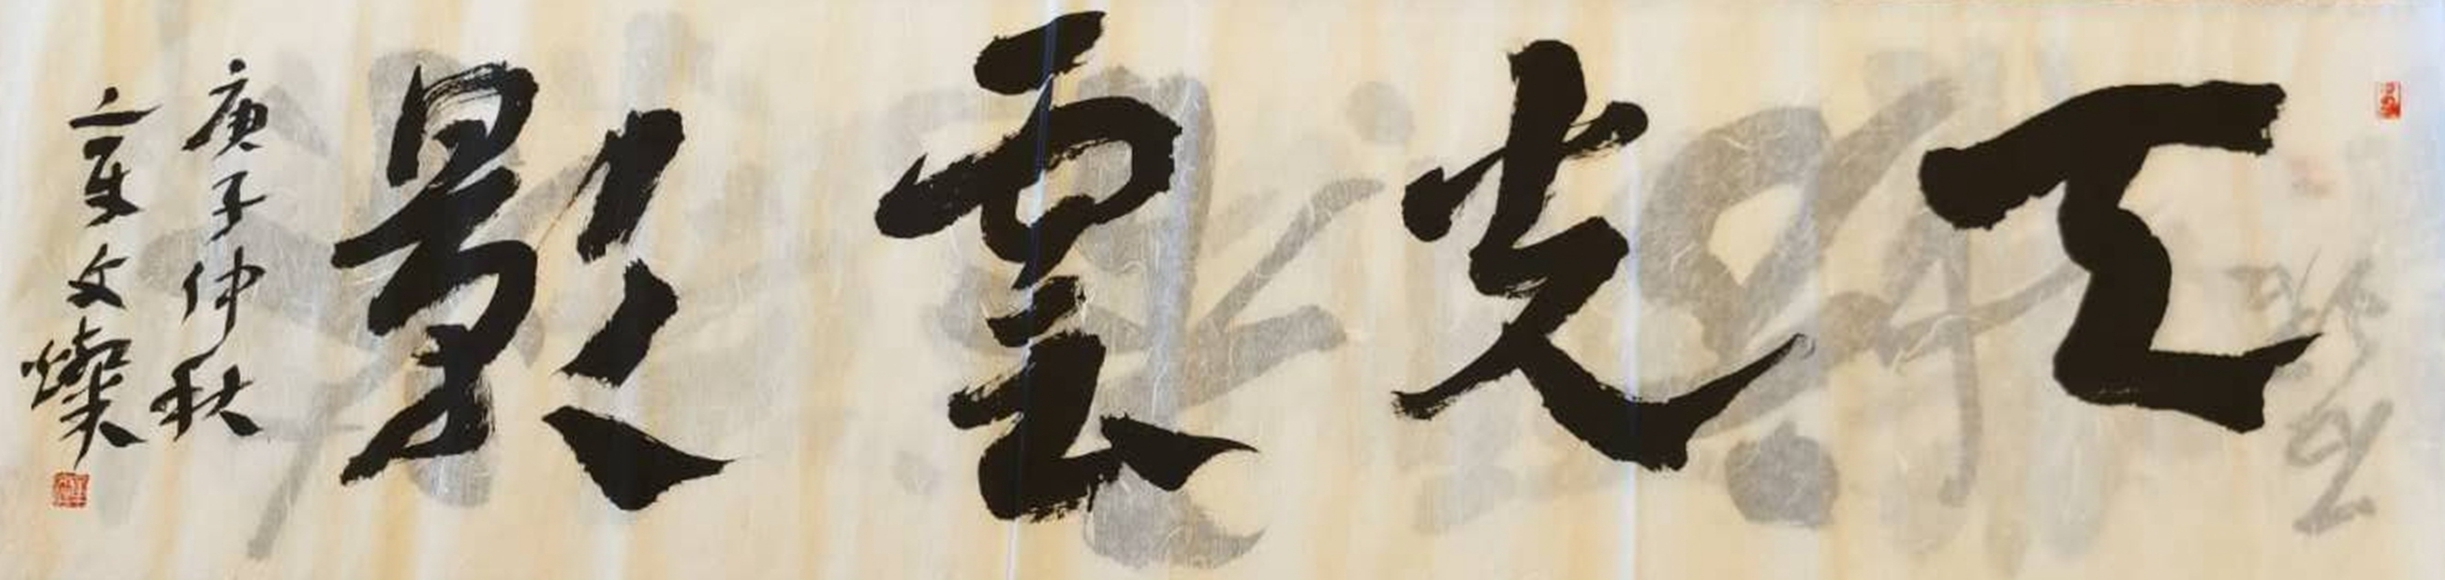 天光雲影
庚子仲秋
文燦